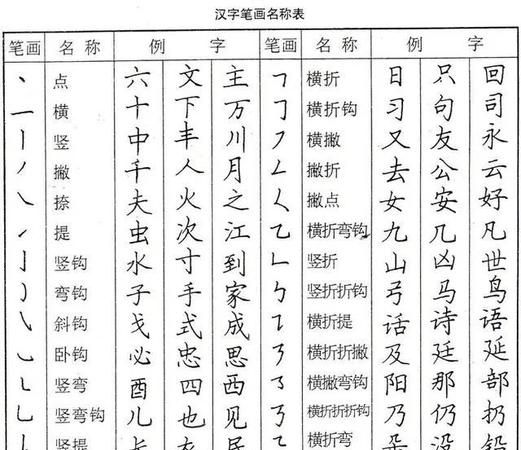 汉字笔画名称表
笔画 名称 例字 笔画 名称 例字
丶 点 六 文 主 ㇕ 横折 日 只 回
一 横 十 下 万 ㇆ 横折钩 习 句 司
丨 竖 中 丰 川 ㇇ 横撇 又 友 永
丿 撇 千 人 月 ㇜ 撇折 去 公 云
㇏ 捺 夫 火 之 ㇛ 撇点 女 安 好
㇀ 提 虫 次 江 ㇈ 横折弯钩 九 几 凡
亅 竖钩 水 寸 到 ㇗ 竖折 山 凶 世
㇁ 弯钩 子 手 家 ㇉ 竖折折钩 弓 马 鸟
㇂ 斜钩 戈 式 成 ㇊ 横折提 话 诗 语
㇃ 卧钩 必 忠 思 ㇋ 横折折撇 及 廷 延
㇄ 竖弯 酉 四 西 ㇌ 横撇弯钩 阳 那 部
乚 竖弯钩 儿 也 见 ㇡ 横折折折钩 乃 仍 扔
㇙ 竖提 长 ㇍ 横折弯 朵 没 铅